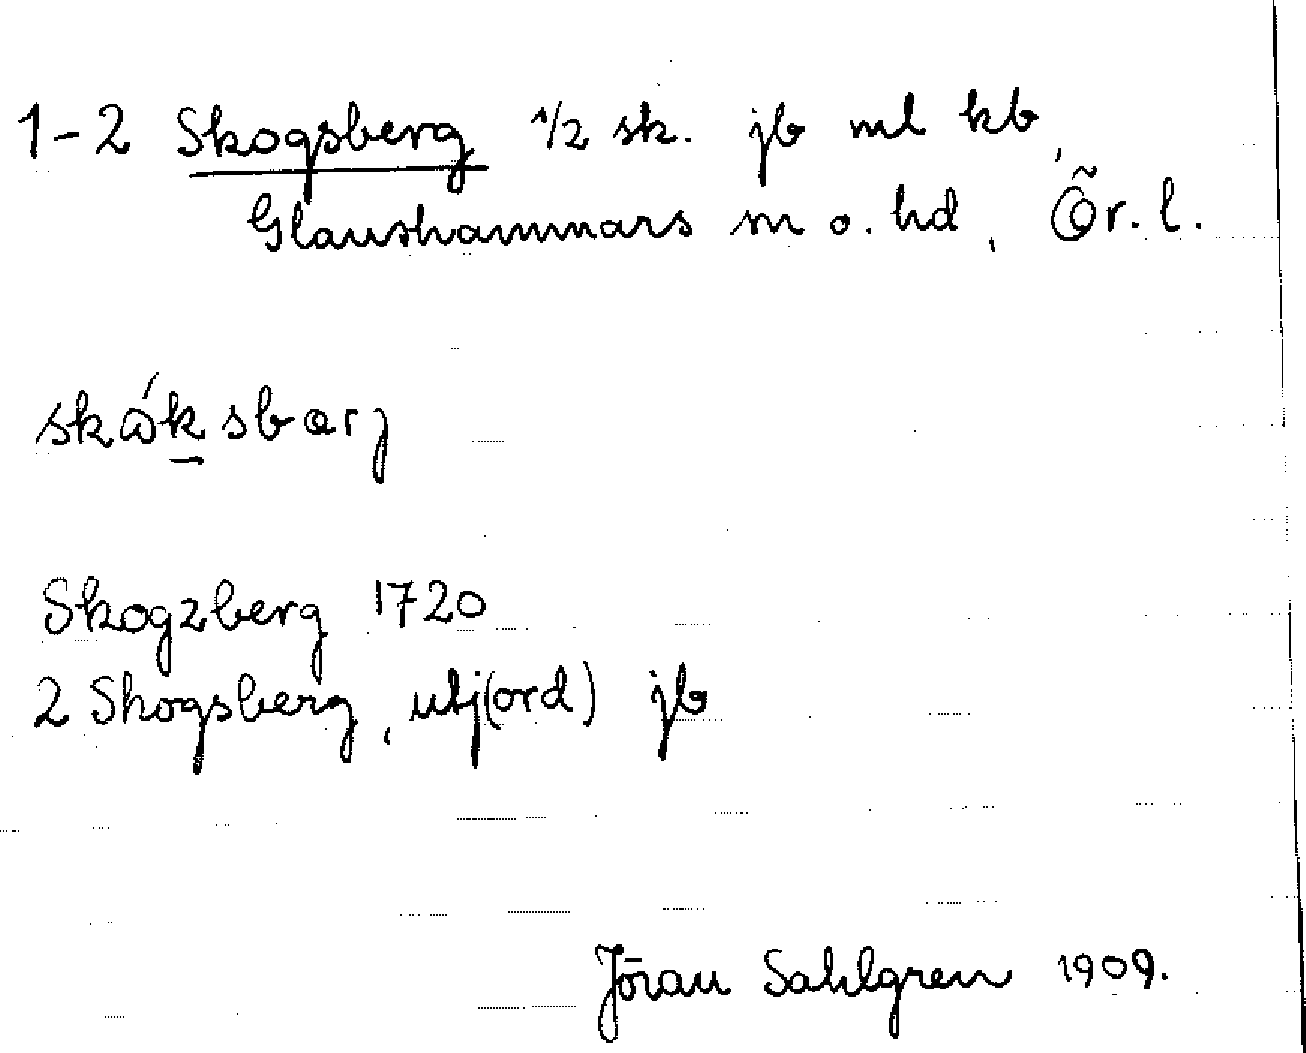 1-2 Skogsberg 1/2 sk. jb ml kb,
Glanshammars sn o. hd, Ör. l.
skǻksbarj
Skogzberg 1720
2 Skogsberg, utj(ord) jb
Jöran Sahlgren 1909.